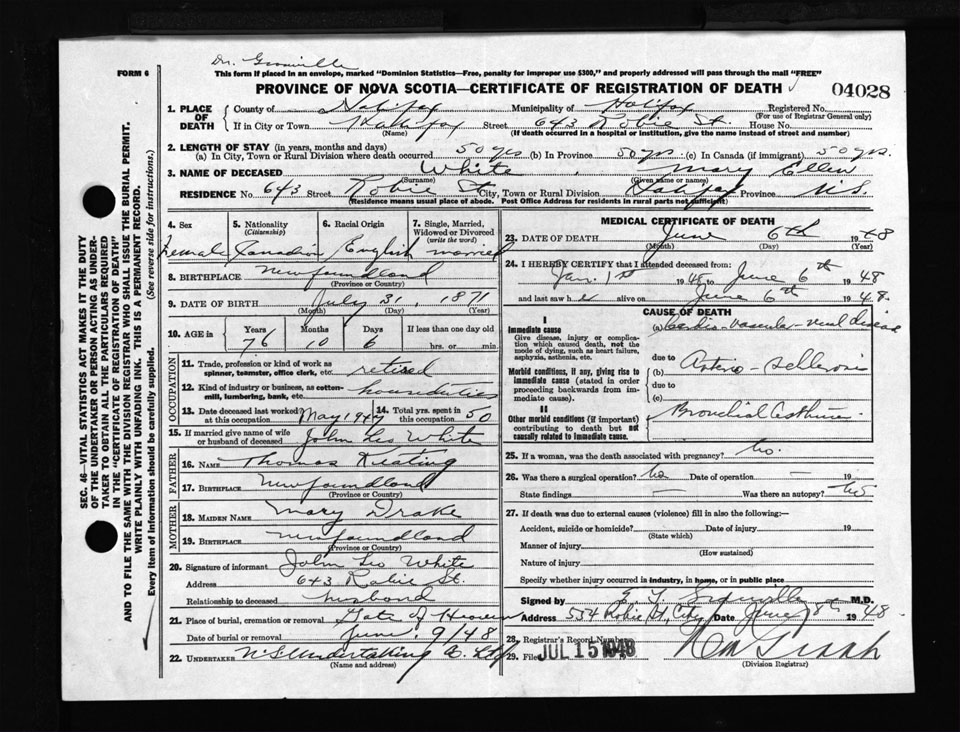 Dr. Granville
FORM 6
This form if placed in an envelope, marked "Dominion Statistics—Free, penalty for improper use $300," and properly addressed will pass through the mail "FREE"
PROVINCE OF NOVA SCOTIA—CERTIFICATE OF REGISTRATION OF DEATH
04028
1. PLACE OF DEATH County of Halifax Municipality of Halifax Registered No.
(For use of Registrar General only)
If in City or Town Halifax Street 643 Robie St. House No.
(Name) (If death occurred in a hospital or institution, give the name instead of street and number)
2. LENGTH OF STAY (in years, months and days)
(a) In City, Town or Rural Division where death occurred 50 yrs (b) In Province 50 yrs (c) In Canada (if immigrant) 50 yrs.
3. NAME OF DECEASED White, Mary Ellen
(Surname) (Given name or names)
RESIDENCE No. 643 Street Robie St City, Town or Rural Division Halifax Province N.S.
(Residence means usual place of abode. Post Office Address for residents in rural parts not sufficient)
4. Sex 5. Nationality (Citizenship) 6. Racial Origin 7. Single, Married, Widowed or Divorced (write the word)
Female Canadian English married
8. BIRTHPLACE Newfoundland
(Province or Country)
9. DATE OF BIRTH July 31, 1871
(Month) (Day) (Year)
10. AGE in Years Months Days If less than one day old
76 10 6 hrs. or min.
OCCUPATION
11. Trade, profession or kind of work as spinner, teamster, office clerk, etc. retired
12. Kind of industry or business, as cotton-mill, lumbering, bank, etc. houseduties
13. Date deceased last worked at this occupation May 1947 14. Total yrs. spent in this occupation 50
15. If married give name of wife or husband of deceased John Leo White
FATHER
16. NAME Thomas Keating
17. BIRTHPLACE Newfoundland
(Province or Country)
MOTHER
18. MAIDEN NAME Mary Drake
19. BIRTHPLACE Newfoundland
(Province or Country)
20. Signature of informant John Leo White
Address 643 Robie St.
Relationship to deceased husband
21. Place of burial, cremation or removal Gate of Heaven
Date of burial or removal June 9/48
22. UNDERTAKER N.S. Undertaking Co. Ltd
(Name and address)
MEDICAL CERTIFICATE OF DEATH
23. DATE OF DEATH June 6th 1948
(Month) (Day) (Year)
24. I HEREBY CERTIFY that I attended deceased from:
Jan. 1st 1945 to June 6th 1948
and last saw h alive on June 6th 1948.
CAUSE OF DEATH
I
Immediate cause
Give disease, injury or complication which caused death, not the mode of dying, such as heart failure, asphyxia, asthenia, etc.
(a) Cardio-vascular-renal disease
due to
Morbid conditions, if any, giving rise to immediate cause (stated in order proceeding backwards from immediate cause).
(b) Arterio-sclerosis
due to
(c)
II
Other morbid conditions (if important) contributing to death but not causally related to immediate cause.
Bronchial asthma
25. If a woman, was the death associated with pregnancy? No.
26. Was there a surgical operation? No Date of operation — 19
State findings — Was there an autopsy? No
27. If death was due to external causes (violence) fill in also the following:—
Accident, suicide or homicide? Date of injury 19
(State which)
Manner of injury
(How sustained)
Nature of injury
Specify whether injury occurred in industry, in home, or in public place
Signed by E. T. Granville M.D.
Address 554 Robie St., City Date June 8 1948.
28. Registrar's Record Number
29. Filed JUL 15 1948
(Division Registrar)
SEC. 46—VITAL STATISTICS ACT MAKES IT THE DUTY
OF THE UNDERTAKER OR PERSON ACTING AS UNDERTAKER TO OBTAIN ALL THE PARTICULARS REQUIRED
IN THE "CERTIFICATE OF REGISTRATION OF DEATH"
AND TO FILE THE SAME WITH THE DIVISION REGISTRAR WHO SHALL ISSUE THE BURIAL PERMIT.
WRITE PLAINLY WITH UNFADING INK. THIS IS A PERMANENT RECORD.
Every item of information should be carefully supplied. (See reverse side for instructions.)